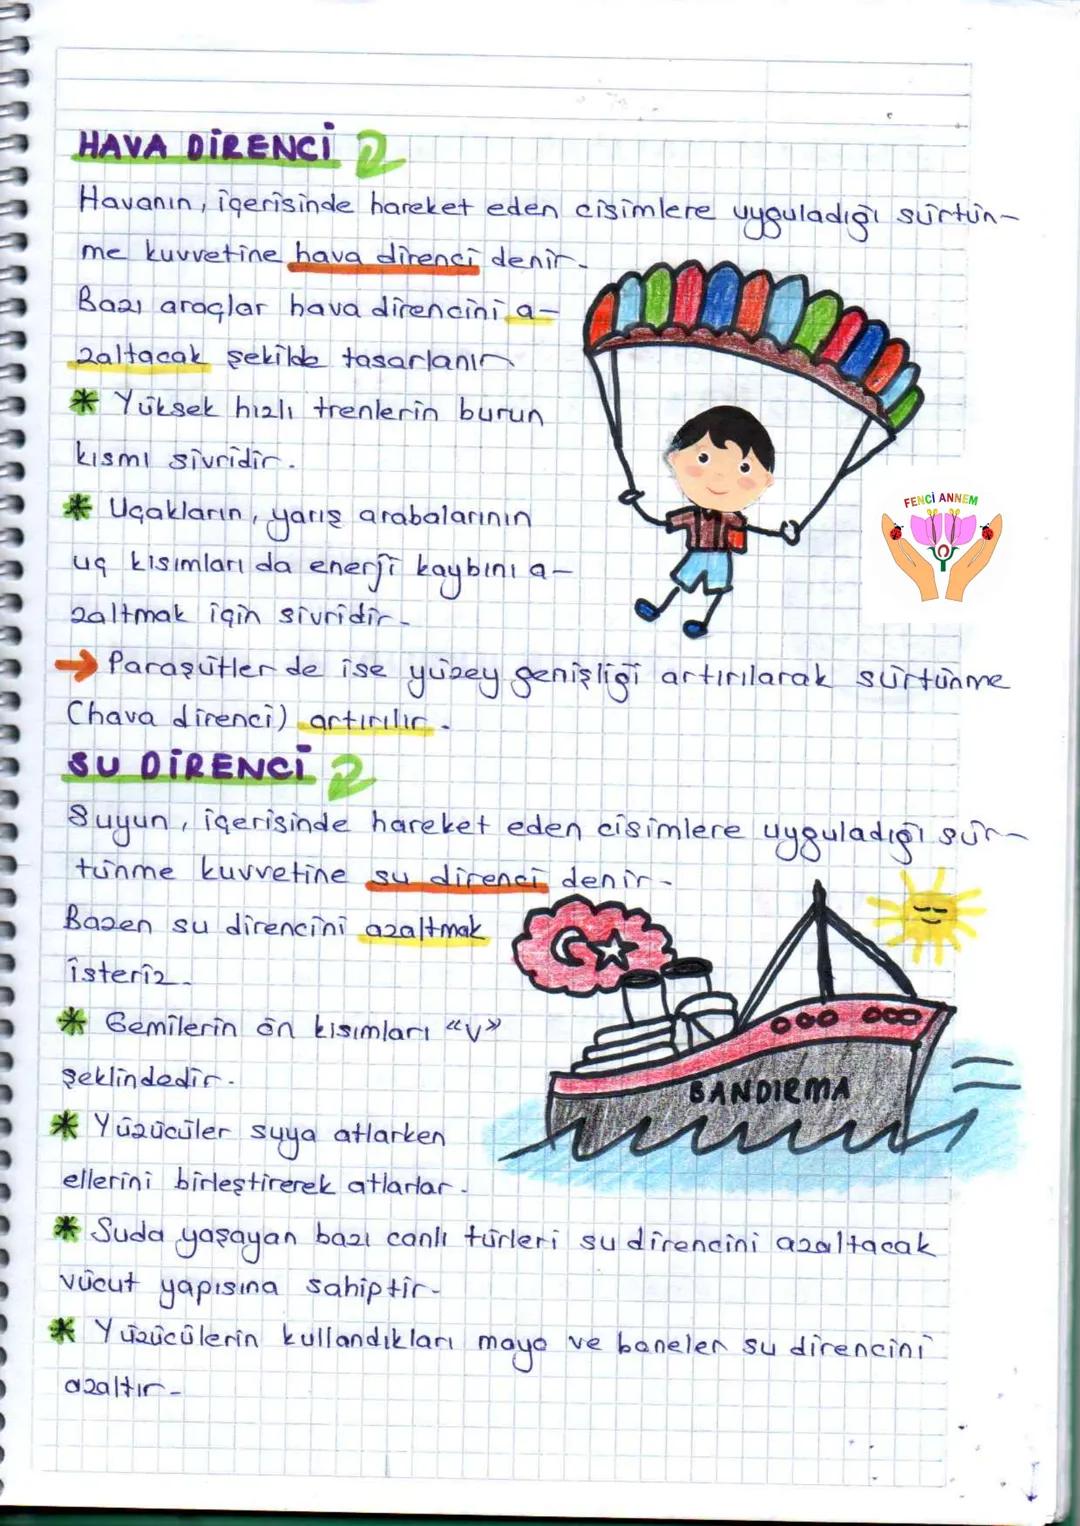 HAVA DİRENCİ
Havanın, içerisinde hareket eden cisimlere uyguladığı sürtün-
me kuvvetine hava direnci denir.
Bazı araçlar hava direncini a-
zaltacak şekilde tasarlanır
* Yüksek hızlı trenlerin burun
kısmı sivridir.
* Uçakların, yarış arabalarının
uç kısımları da enerji kaybını a-
zaltmak için sivridir.
→ Paraşütler de ise yüzey genişliği artırılarak sürtünme
(hava direnci) artırılır.
FENCİ ANNEM
SU DİRENCİ
Suyun, içerisinde hareket eden cisimlere uyguladığı sür-
tünme kuvvetine su direnci denir.
Bazen su direncini azaltmak
isteriz.
* Gemilerin ön kısımları "V"
şeklindedir.
BANDIRMA
* Yüzücüler suya atlarken
ellerini birleştirerek atlarlar.
* Suda yaşayan bazı canlı türleri su direncini azaltacak
vücut yapısına sahiptir.
* Yüzücülerin kullandıkları mayo ve boneler su direncini
azaltır.